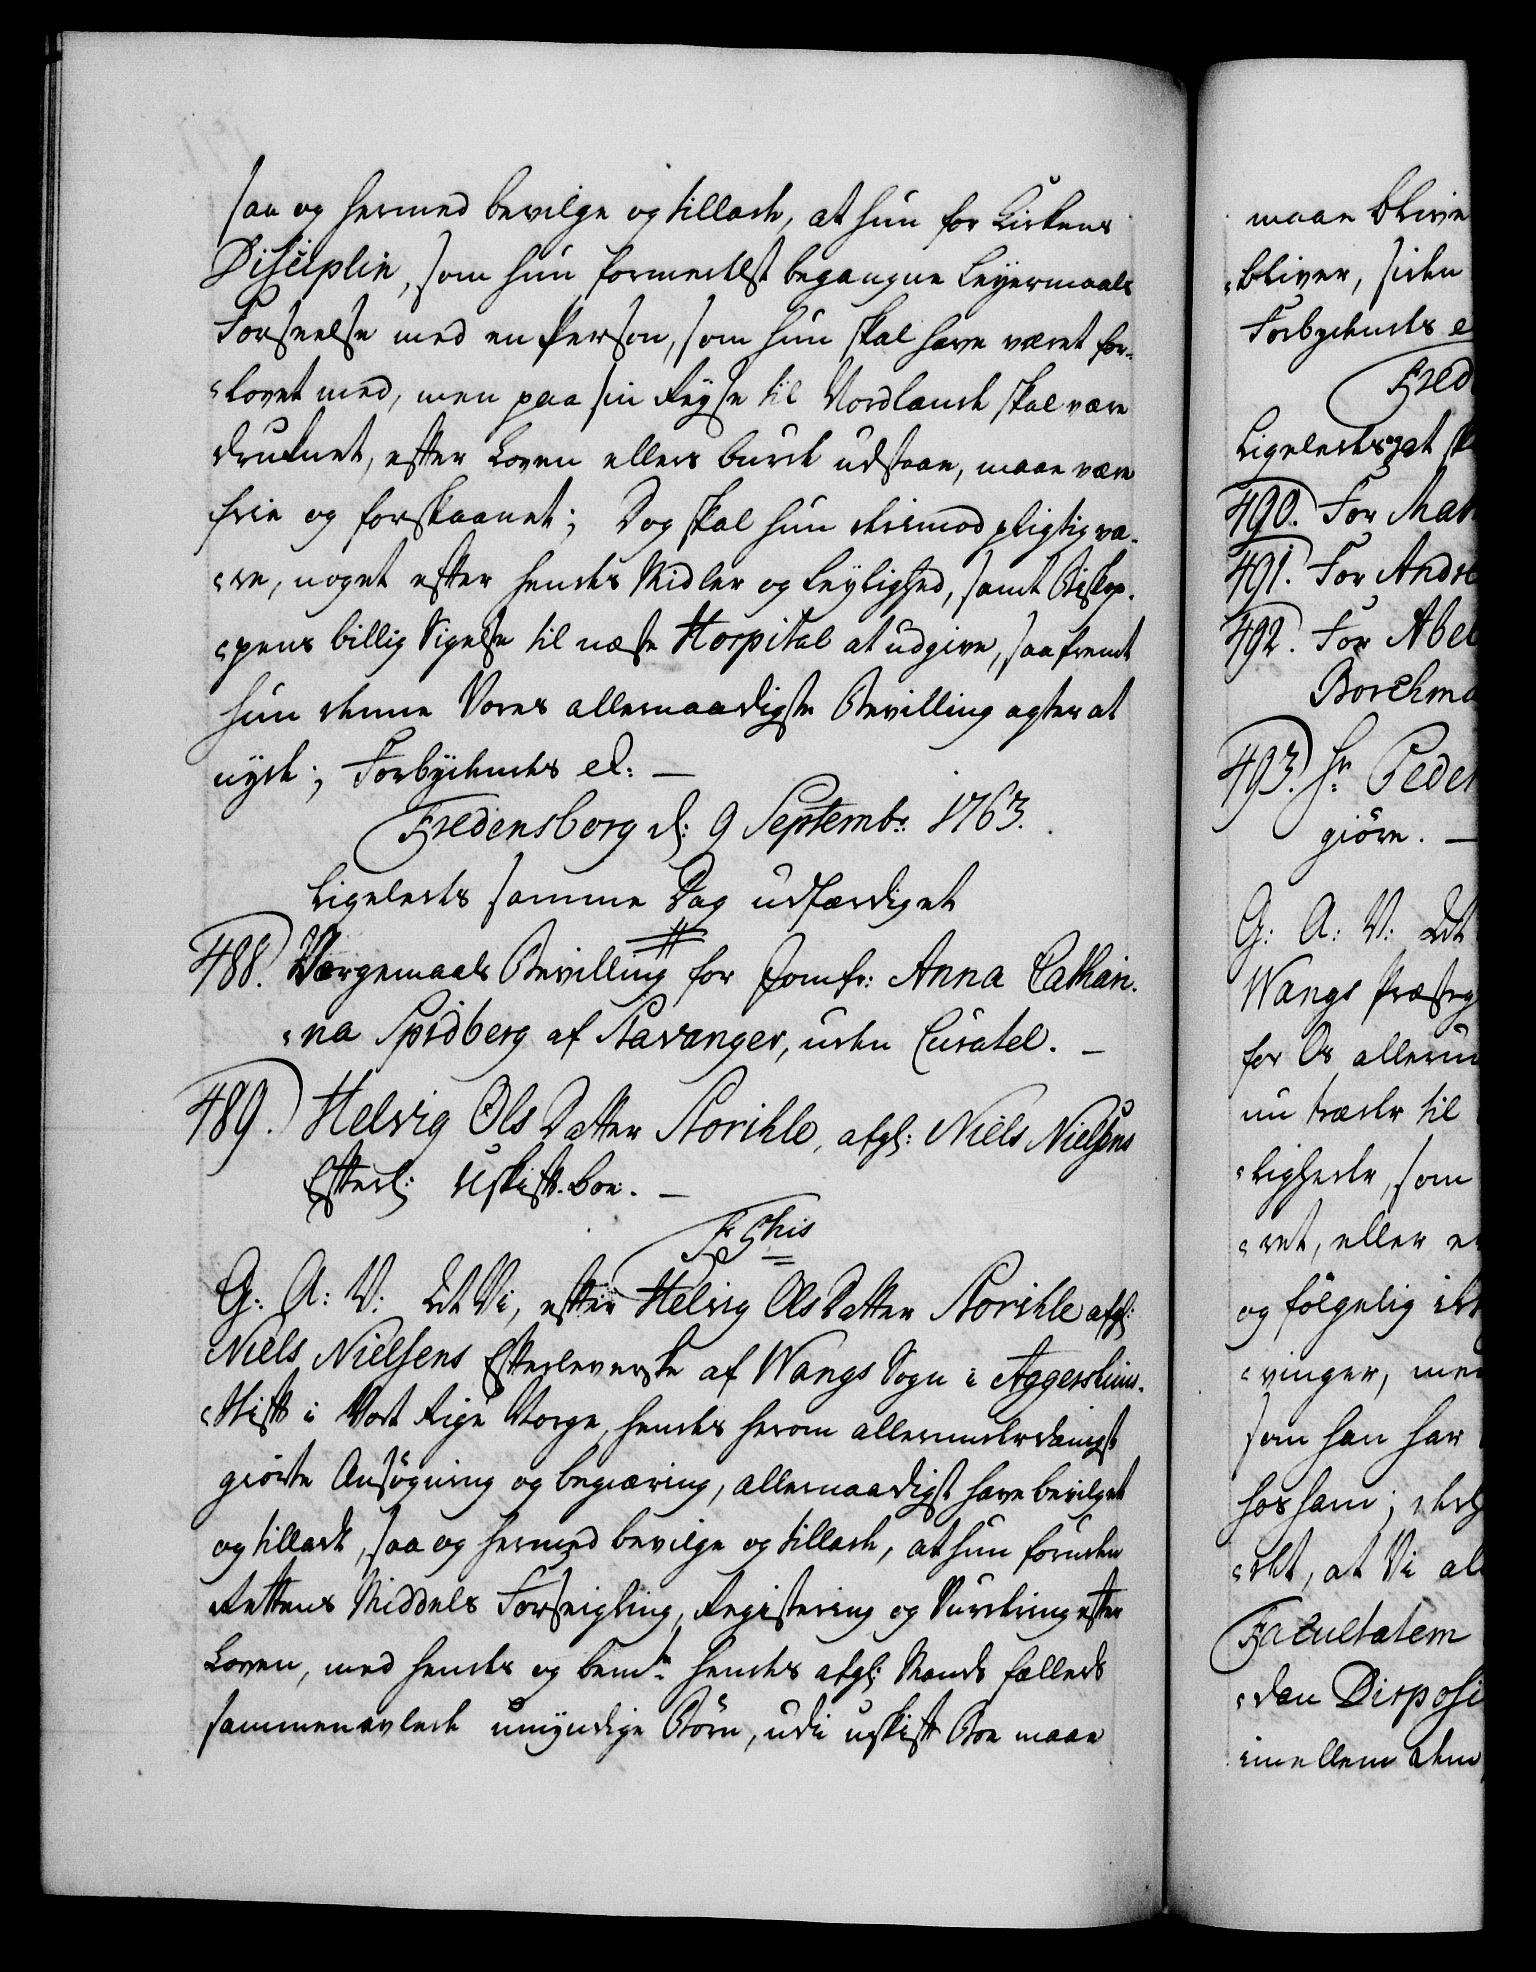 saa og hermed bevilge og tillade, at hun for Kirkens
Disciplin, som hun formedelst begangne Leyermaals
Forseelse med en Person, som hun skal have været for-
lovet med, men paa sin Reyse til Nordland skal være
druknet, efter Loven ellers burde udstaae, maae være
frie og forskaanet; Dog skal hun derimod pligtig væ-
re, noget efter hendes Midler og Leylighed, samt Biskop-
pens billig Sigelse til næste Hospital at udgive, saafremt
hun denne Vores allernaadigste Bevilling agter at
nyde; Forbydendes etc: —
Fredensborg d: 9 Septembr: 1763.
Ligeledes samme Dag udfærdiget
488. Værgemaals Bevilling for Jomfr: Anna Cathari-
na Spidberg af Stavanger, uden Curatel. —
489. Helvig Ols Datter Storihle, afgl: Niels Nielsens
Efterl: Uskift. Boe. —
G: A: V: At Vi, efter Helvig Ols Datter Storihle afgl:
Niels Nielsens Efterleverske af Wangs Sogn i Aggershuus-
Stift i Vort Rige Norge, hendes herom allerunderdanigst
giorte Ansøgning og begiæring, allernaadigst have bevilget
og tilladt, saa og hermed bevilge og tillade, at hun foruden
Rettens Middels Forseigling, Registering og Vurdering efter
Loven, med hendes og bemte hendes afgl: Mands fælleds
sammenavlede umyndige Børn, udi uskift Boe maae
maae blive
bliver, siden
Forbydendes e
Fred
Ligeledes
490. For Mat
491. For Andre
492. For Abel
Borchma
493. Hr. Peder
giöre. —
G: A: V: At
Wangs Præsteg
for Os allerun
nu træder til
lighede, som
ret, eller e
og fölgelig
vinger, me
som han har
hos ham;
det, at Vi al
Facultatem
dan Disposi
imellem dem